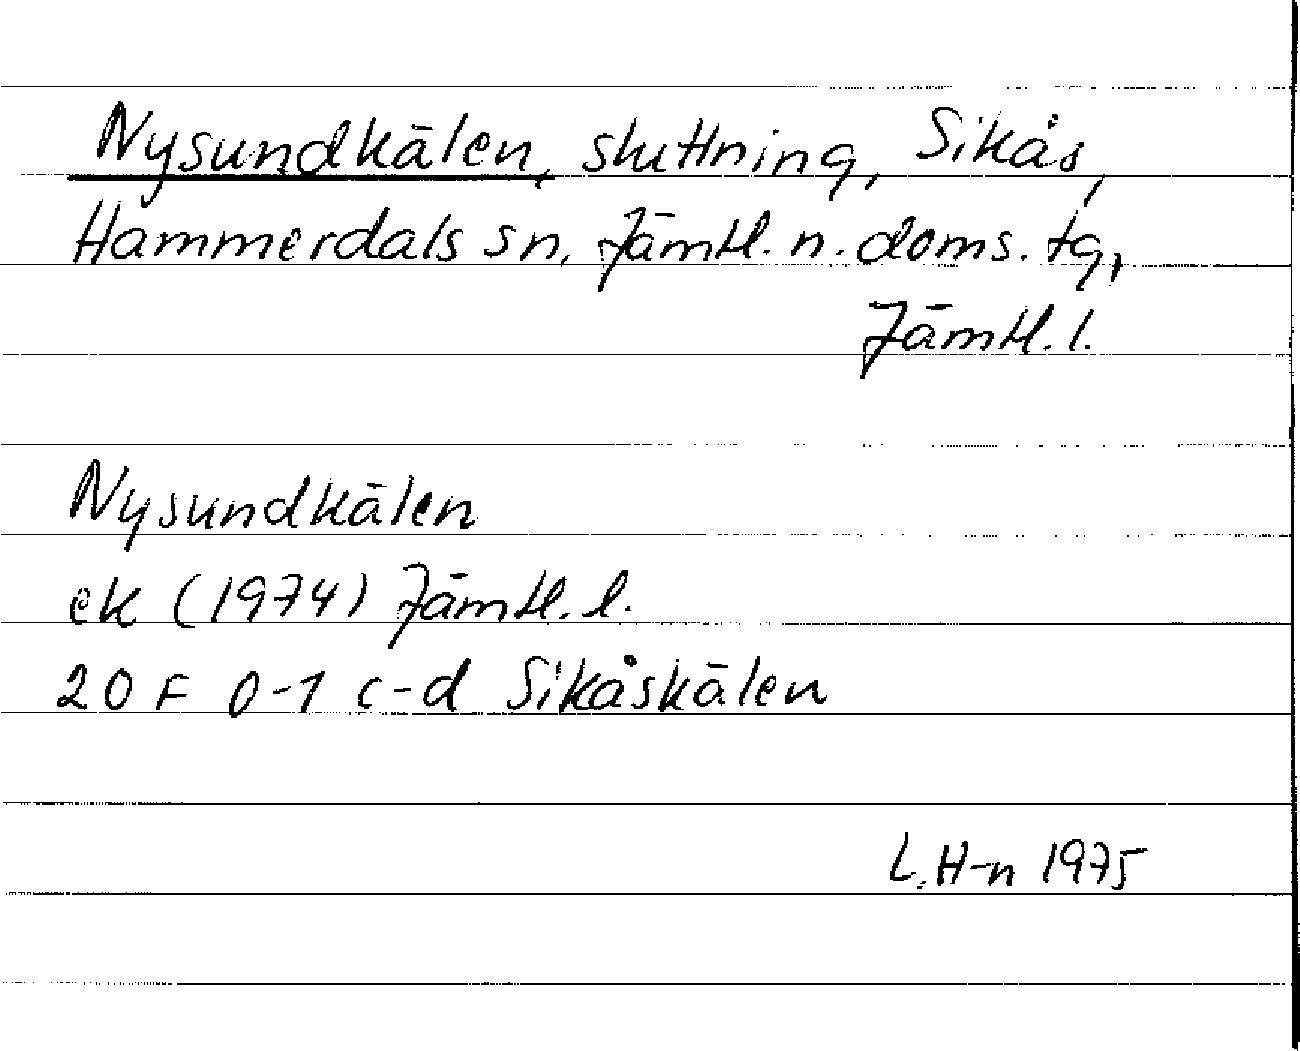 Nysundkälen, sluttning, Sikås,
Hammerdals sn, Jämtl. n. doms. tg,
Jämtl. l.
Nysundkälen
ek (1974) Jämtl. l.
20 F 0-1 c-d Sikåskälen
L. H-n 1975